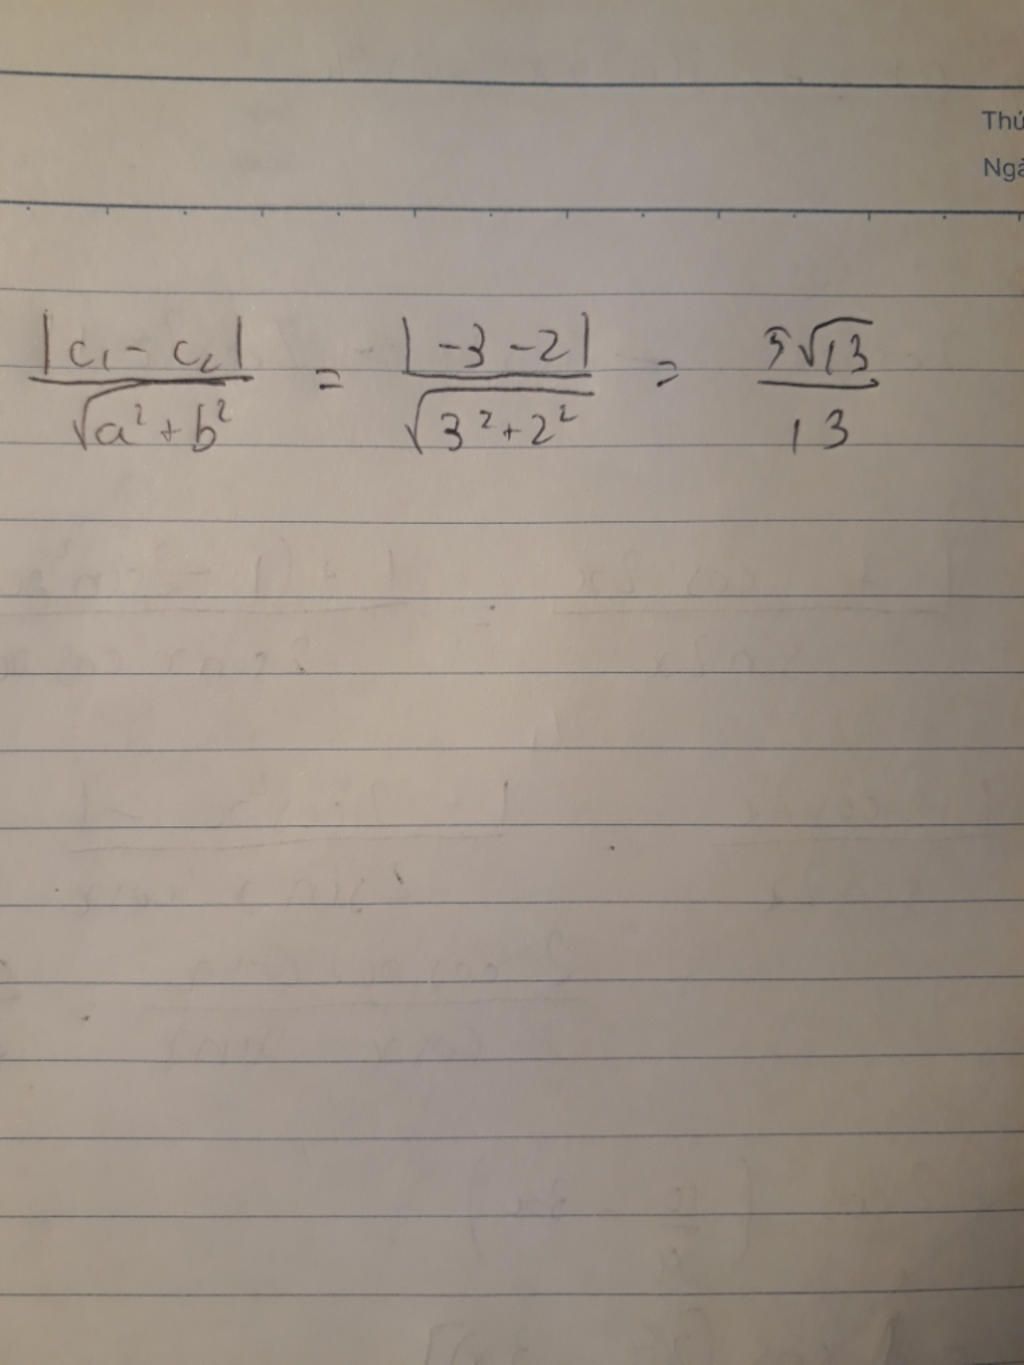 Thứ
Ngà
|c₁ - c₂| / √(a² + b²) = |-3 - 2| / √(3² + 2²) = 5√13 / 13